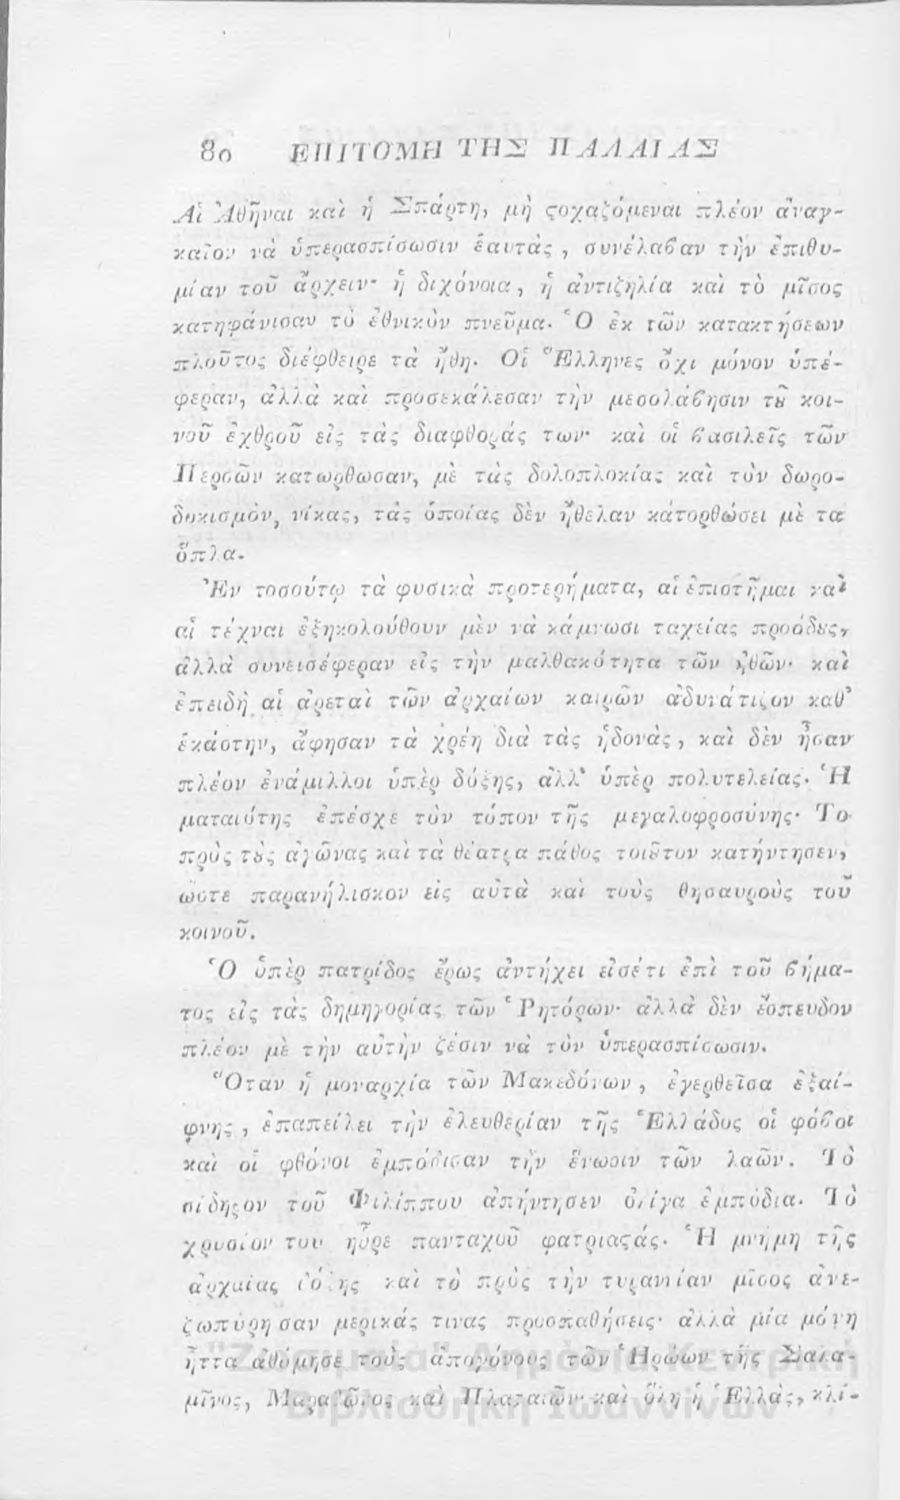 80 ΕΠΙΤΟΜΗ ΤΗΣ ΠΑΛΑΙΑΣ
Αἱ Ἀθῆναι καὶ ἡ Σπάρτη, μὴ ϛοχαζόμεναι πλέον ἀναγ-
καῖον νὰ ὑπερασπίσωσιν ἑαυτὰς, συνέλαβαν τὴν ἐπιθυ-
μίαν τοῦ ἄρχειν· ἡ διχόνοια, ἡ ἀντιζηλία καὶ τὸ μῖσος
κατηφάνισαν τὸ ἐθνικὸν πνεῦμα. Ὁ ἐκ τῶν κατακτήσεων
πλοῦτος διέφθειρε τὰ ἤθη. Οἱ Ἕλληνες ὄχι μόνον ὑπέ-
φεραν, ἀλλὰ καὶ προσεκάλεσαν τὴν μεσολάβησιν τȣ κοι-
νοῦ ἐχθροῦ εἰς τὰς διαφθοράς των· καὶ οἱ βασιλεῖς τῶν
Περσῶν κατωρθωσαν, μὲ τὰς δολοπλοκίας καὶ τὸν δωρο-
δοκισμὸν, νίκας, τὰς ὁποίας δὲν ἤθελαν κάτορθώσει μὲ τα
ὅπλα.
Ἐν τοσούτῳ τὰ φυσικὰ προτερήματα, αἱ ἐπιστῆμαι καὶ
αἱ τέχναι ἐξηκολούθουν μὲν νὰ κάμνωσι ταχείας προόδȣς,
ἀλλὰ συνεισέφεραν εἰς τὴν μαλθακότητα τῶν ἠθῶν· καὶ
ἐπειδὴ αἱ ἀρεταὶ τῶν ἀρχαίων καιρῶν ἀδυνάτιζον καθ'
ἑκάστην, ἄφησαν τὰ χρέη διὰ τὰς ἡδονὰς, καὶ δὲν ἦσαν
πλέον ἐνάμιλλοι ὑπὲρ δόξης, ἀλλ' ὑπὲρ πολυτελείας. Ἡ
ματαιότης ἐπέσχε τὸν τόπον τῆς μεγαλοφροσύνης· Το
πρὸς τȣς ἀγῶνας καὶ τὰ θέατρα πάθος τοιȣτον κατήντησεν,
ὥστε παρανήλισκον εἰς αὐτὰ καὶ τοὺς θησαυροὺς τοῦ
κοινοῦ.
Ὁ ὑπὲρ πατρίδος ἔρως ἀντήχει εἰσέτι ἐπὶ τοῦ βήμα-
τος εἰς τὰς δημηγορίας τῶν Ῥητόρων· ἀλλὰ δὲν ἔσπευδον
πλέον μὲ τὴν αὐτὴν ζέσιν νὰ τὸν ὑπερασπίσωσιν.
Ὅταν ἡ μοναρχία τῶν Μακεδόνων, ἐγερθεῖσα ἐξαί-
φνης, ἐπαπείλει τὴν ἐλευθερίαν τῆς Ἑλλάδος οἱ φόβοι
καὶ οἱ φθόνοι ἐμπόδισαν τὴν ἕνωσιν τῶν λαῶν. Τὸ
σίδηρον τοῦ Φιλίππου ἀπήντησεν ὀλίγα ἐμπόδια. Τὸ
χρυσίον του ηὗρε πανταχοῦ φατριαϛάς. Ἡ μνήμη τῆς
ἀρχαίας δόξης καὶ τὸ πρὸς τὴν τυραννίαν μῖσος ἀνε-
ζωπύρησαν μερικάς τινας προσπαθήσεις· ἀλλὰ μία μόνη
ἧττα ἀθύμησε τοὺς ἀπογόνους τῶν Ἡρώων τῆς Σαλα-
μῖνος, Μαραθῶνος καὶ Πλαταιῶν· καὶ ὅλη ἡ Ἑλλὰς, κλί-
"Ζωσιμαία" Δημόσια Κεντρική
Βιβλιοθήκη Ιωαννίνων